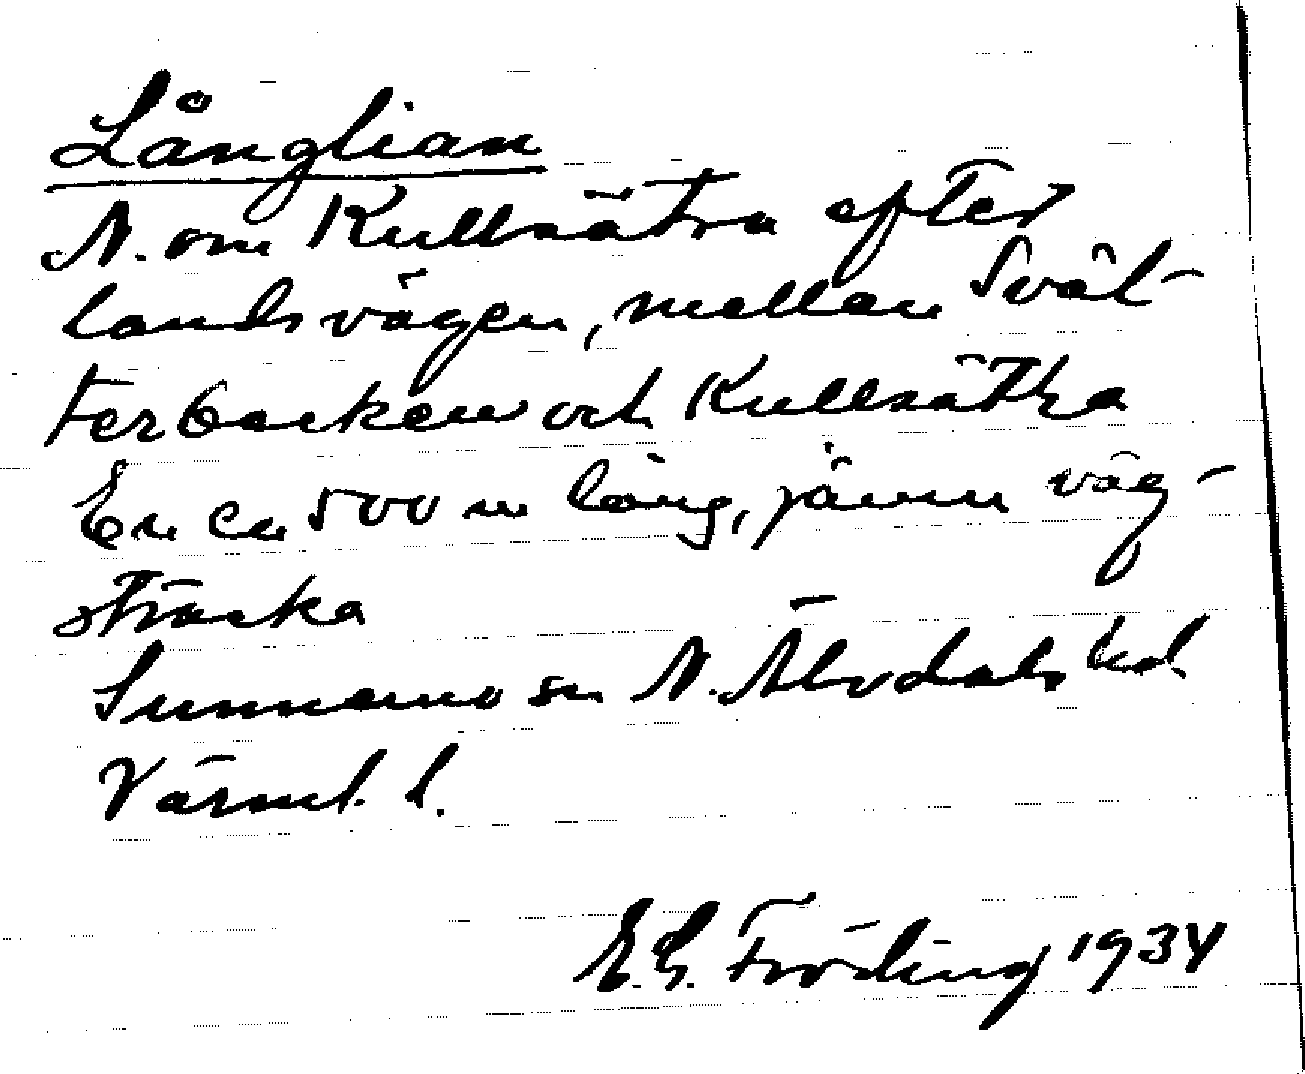 Långlian
N. om Kullsätra efter
landsvägen, mellan Svät-
terbacken och Kullsätra
En ca 500 m lång, jämn väg-
sträcka
Sunnemo sn N. Älvdals hd
Värml. l.
E.G. Fröding 1934